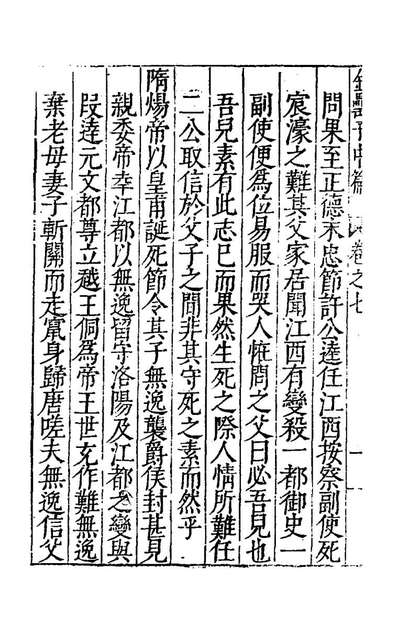 問果至正德末忠節許公逵任江西按察副使死
宸濠之難其父家居聞江西有變殺一都御史一
副使便為位易服而哭人恠問之父曰必吾兒也
吾兒素有此志已而果然生死之際人情所難任
二公取信於父子之間非其守死之素而然乎
隋煬帝以皇甫誕死節令其子無逸襲爵侯封甚見
親委帝幸江都以無逸留守洛陽及江都之變與
段達元文都尊立越王侗為帝王世充作難無逸
棄老母妻子斬關而走竄身歸唐嗟夫無逸信父
卷之七